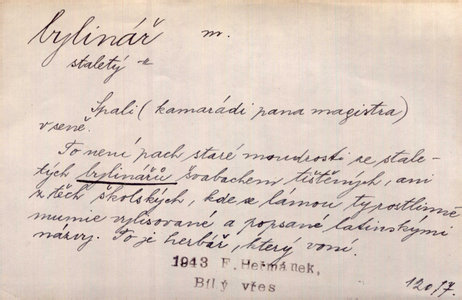 bylinář m.
staletý -ř
Spali (kamarádi pana magistra)
v seně.
To není pach staré moudrosti ze stale-
tých bylinářů švabachem tištěných, ani
z těch školských, kde se lámou ty rostlinné
mumie vylisované a popsané latinskými
názvy. To je herbář, který voní.
1943 F. Heřmánek,
Bílý vřes
120/7.